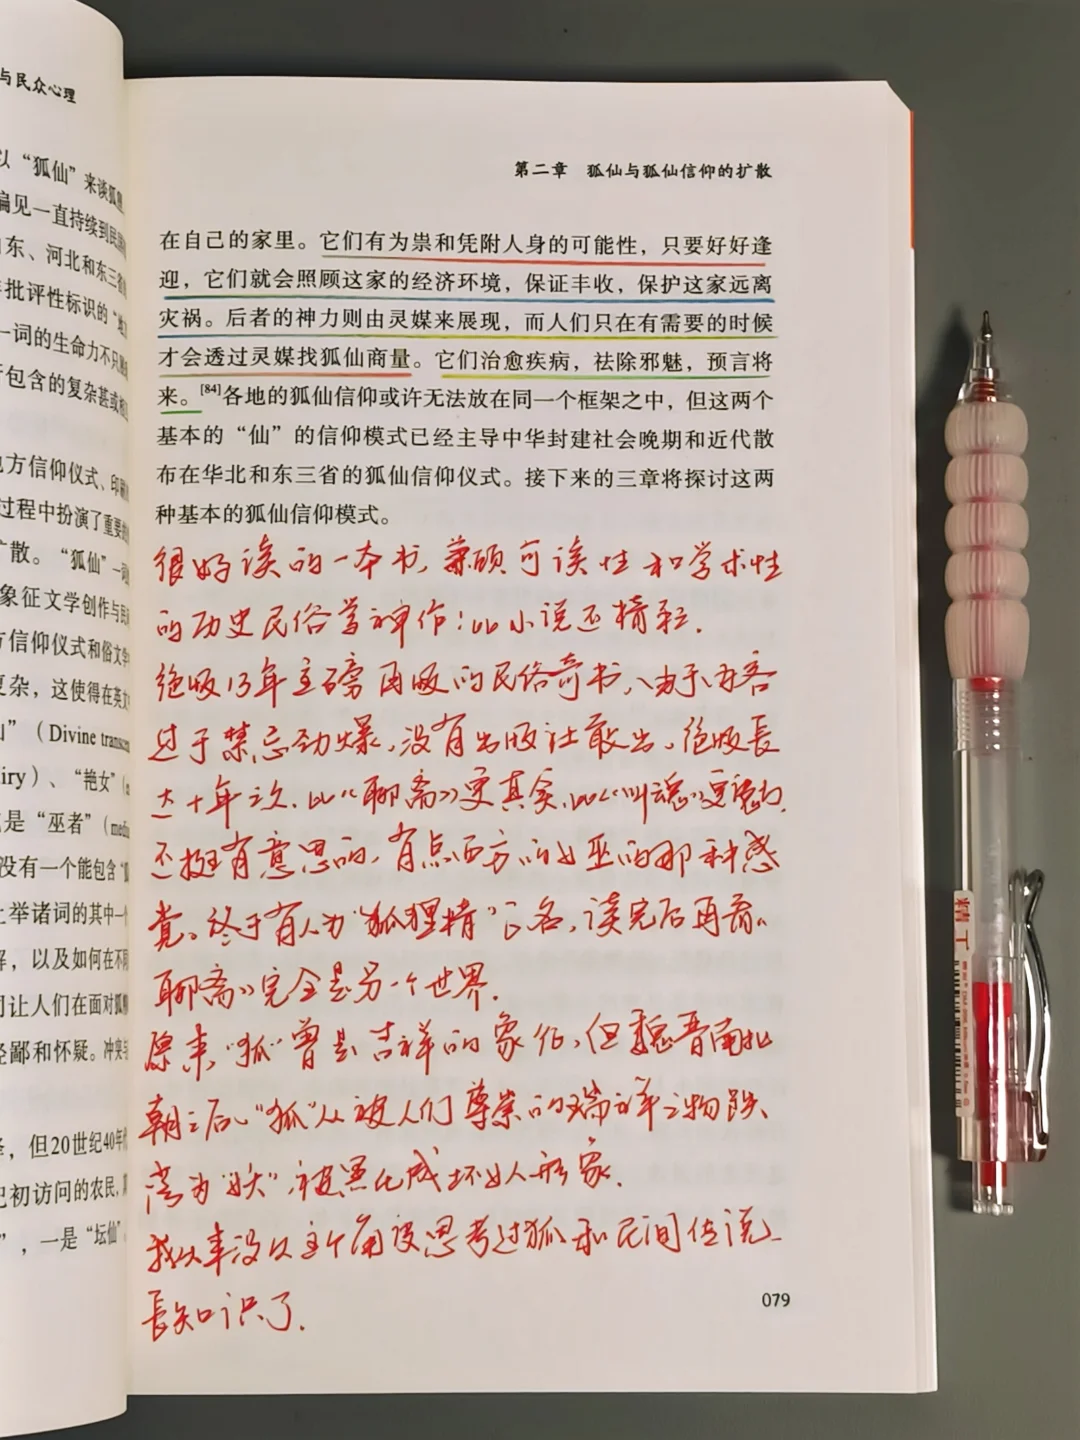 与民众心理
以“狐仙”来谈狐
偏见一直持续到民
东、河北和东三省
批评性标识的“地
一词的生命力不只
包含的复杂甚或相
地方信仰仪式、印刷
过程中扮演了重要的
扩散。“狐仙”一词
象征文学创作与民
方信仰仪式和俗文学
复杂，这使得在英文
”（Divine transcen
iry）、“艳女”（
是“巫者”（medi
没有一个能包含“
上举诸词的其中一个
解，以及如何在不同
司让人们在面对狐
轻鄙和怀疑。冲突
，但20世纪40年代
己初访问的农民，
”，一是“坛仙”
第二章 狐仙与狐仙信仰的扩散
在自己的家里。它们有为祟和凭附人身的可能性，只要好好逢
迎，它们就会照顾这家的经济环境，保证丰收，保护这家远离
灾祸。后者的神力则由灵媒来展现，而人们只在有需要的时候
才会透过灵媒找狐仙商量。它们治愈疾病，祛除邪魅，预言将
来。[84]各地的狐仙信仰或许无法放在同一个框架之中，但这两个
基本的“仙”的信仰模式已经主导中华封建社会晚期和近代散
布在华北和东三省的狐仙信仰仪式。接下来的三章将探讨这两
种基本的狐仙信仰模式。
很好读的一本书，兼顾可读性和学术性
的历史民俗学神作！比小说还精彩.
绝版13年重磅再版的民俗奇书，由于内容
过于禁忌劲爆，没有出版社敢出，绝版長
达十年之久.比《聊斋》更真实，比《叫魂》更魔幻.
还挺有意思的，有点西方的女巫的那种感
觉。终于有人为“狐狸精”正名，读完后再看《
聊斋》完全是另一个世界.
原来，“狐”曾是吉祥的象征，但魏晋南北
朝之后，“狐”从被人们尊崇的瑞祥之物跌
落为“妖”，被黑化成坏女人形象.
我从来没从这个角度思考过狐和民间传说
長知识了.
079
精工